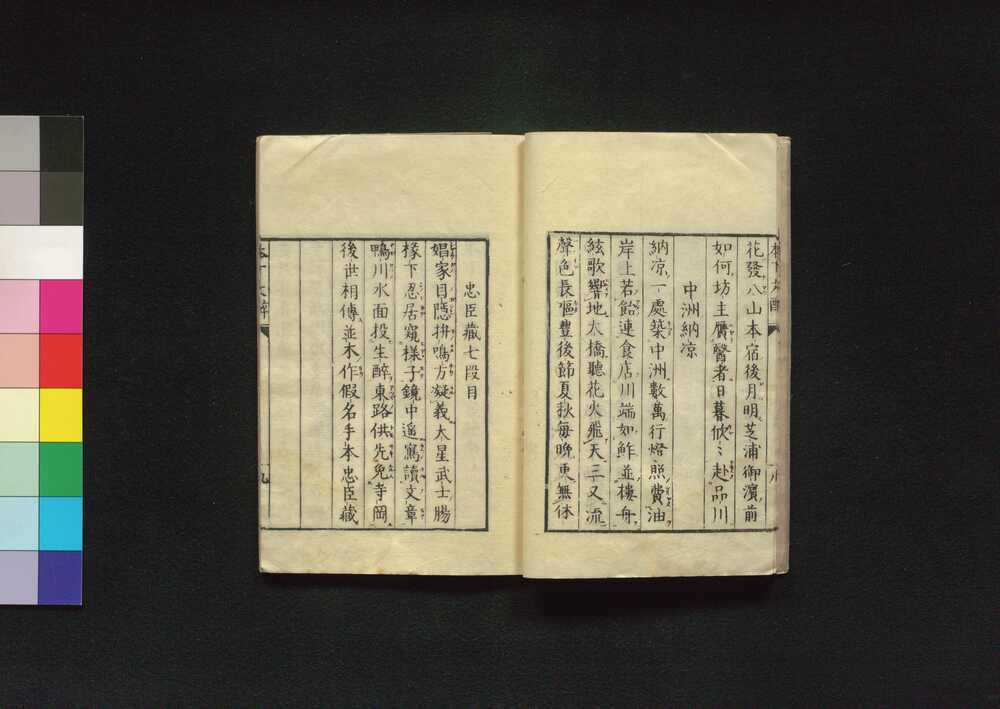 花發八山本宿後月明芝浦御濱前
如何坊主贋醫者日暮佽〻赴品川
中洲納凉
納凉一處築中洲數萬行燈照費油
岸上若飴連食店川端如鮓並樓舟
絃歌響地大橋聽花火飛天三又流
聲色長慪豐後節夏秋每晚更無休
忠臣藏七段目
娼家目隱拼鳴方凝義大星武士腸
椽下忍居窺樣子鏡中遥寫讀文章
鴨川水面投生醉東路供先免寺岡
後世相傳並木作假名手本忠臣藏
九